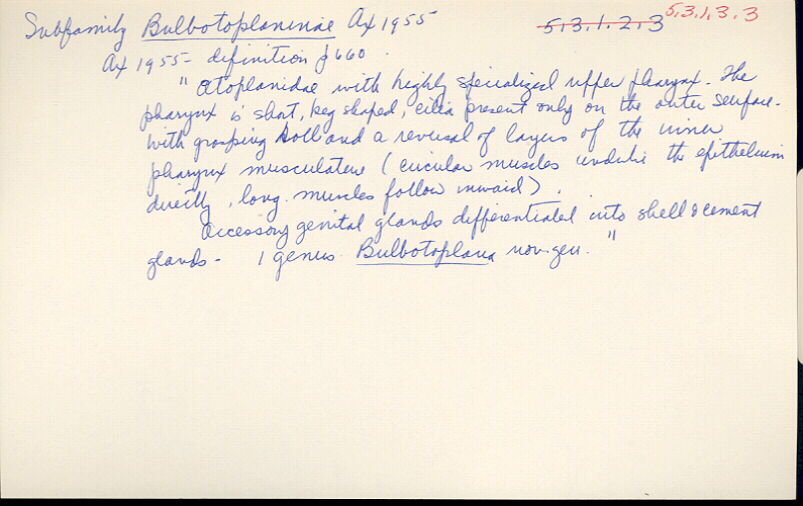 Subfamily Bulbotoplaninae Ax 1955 5.3.1.2.3 5.3.1.3.3
Ax 1955 - definition p 660.
"Otoplanidae with highly specialized upper pharynx. The
pharynx is short, keg shaped, cilia present only on the outer surface.
With grasping and a reversal of layers of the inner
pharynx musculature (circular muscles underlie the epithelium
directly, long. muscles follow inward).
Accessory genital glands differentiated into shell & cement
glands - 1 genus Bulbotoplana nov. gen."